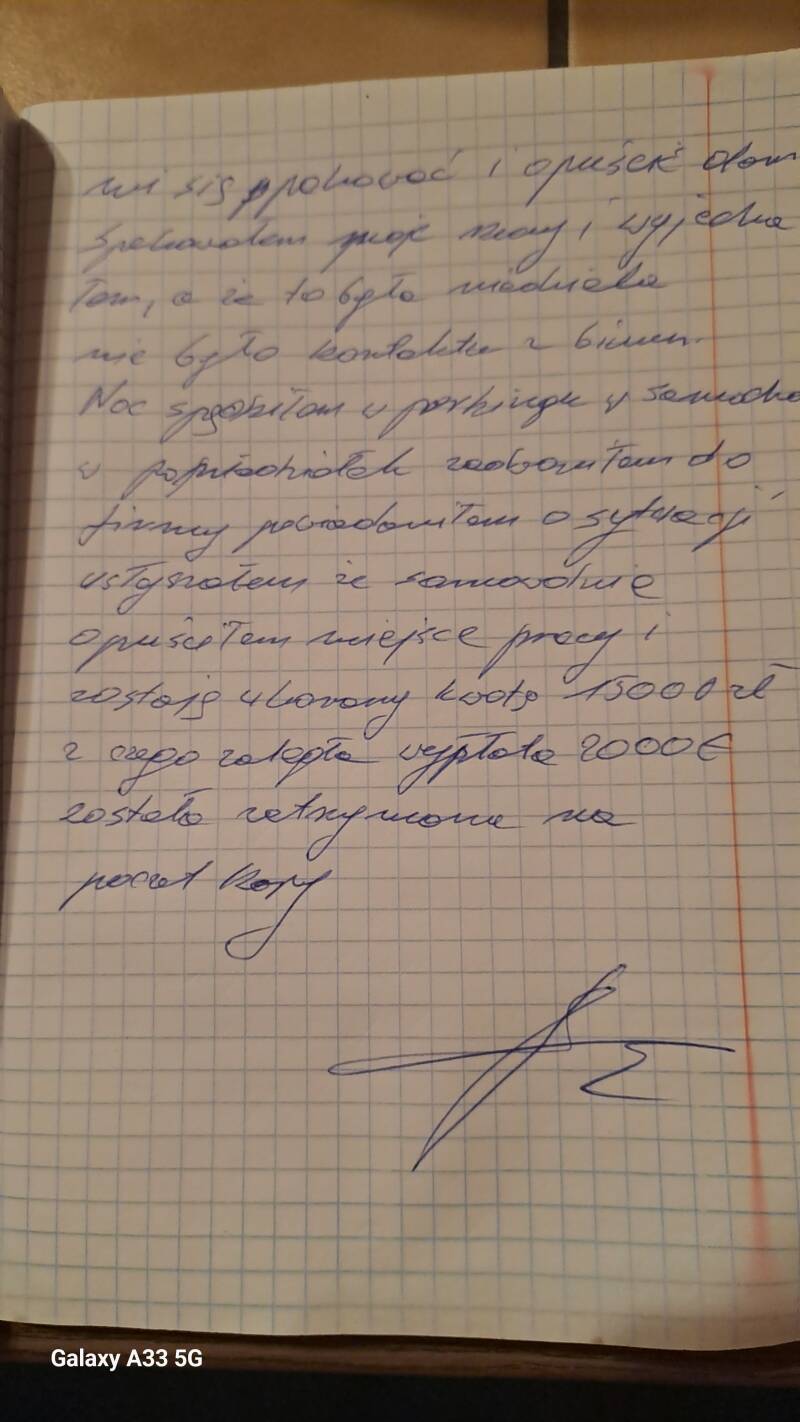 mi się spakować i opuścić dom
spakowałem moje rzeczy i wyjecha
łem, a że to była niedziela
nie było kontaktu z biurem.
Noc spędziłem w parkingu w samocho
w poniedziałek zadzwoniłem do
firmy powiadomiłem o sytuacji
usłyszałem że samowolnie
opuściłem miejsce pracy i
zostaję ukarany kwotą 15000 zł
z czego zaległa wypłata 2000€
została zatrzymana na
poczet kary
Galaxy A33 5G